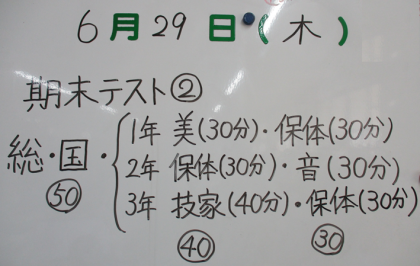 6月29日(木)
期末テスト②
総・国・{1年 美(30分)・保体(30分)
2年 保体(30分)・音(30分)
3年 技家(40分)・保体(30分)
㊿ ㊵ ㉚